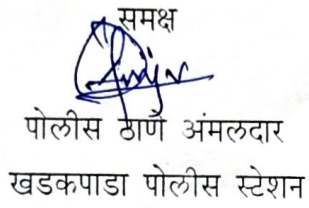 समक्ष
पोलीस ठाणे अंमलदार
खडकपाडा पोलीस स्टेशन